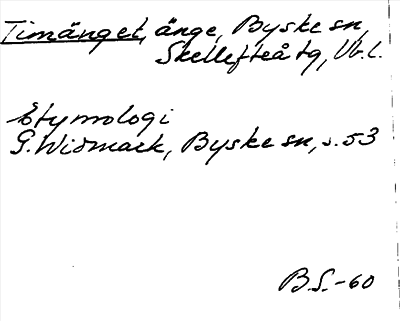 Timänget, änge, Byske sn,
Skellefteå tg, Vb. l.
Etymologi
G. Widmark, Byske sn, s. 53
B.S.-60